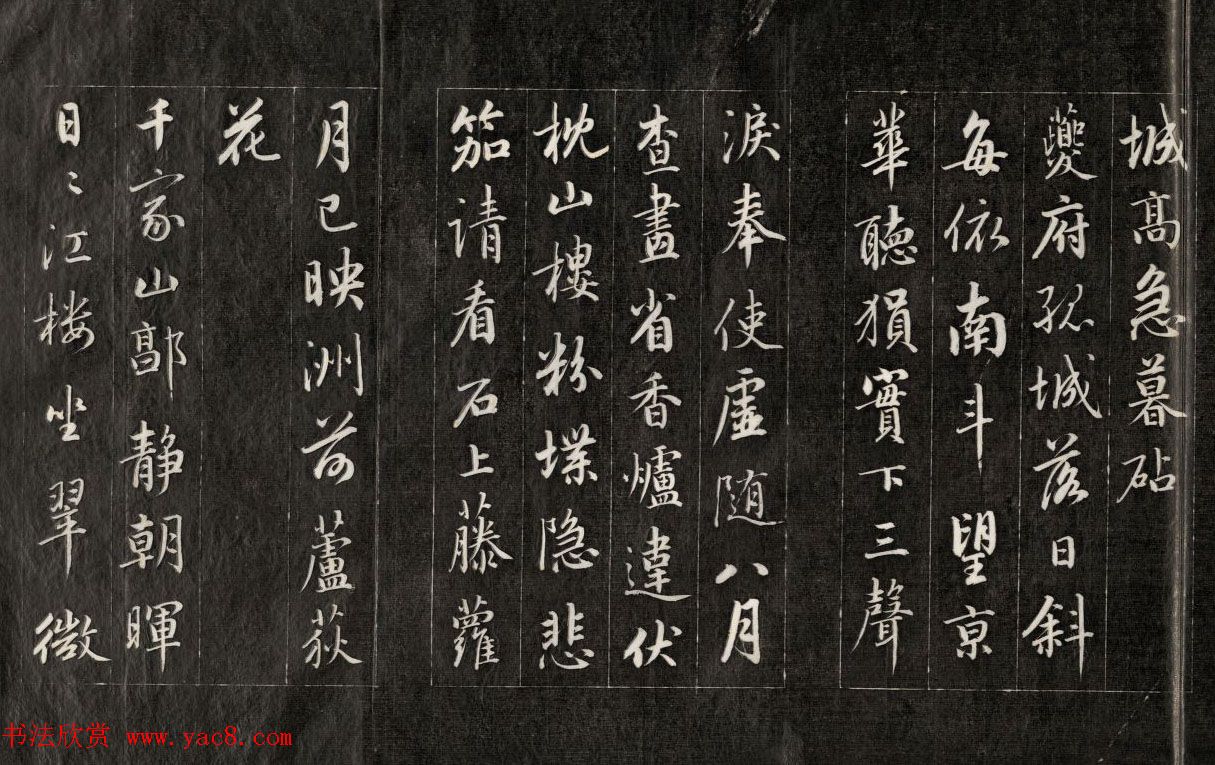 城高急暮砧
夔府孤城落日斜
每依南斗望京
華聽猿實下三聲
淚奉使虛随八月
查畫省香爐違伏
枕山樓粉堞隐悲
笳请看石上藤蘿
月已映洲前蘆荻
花
千家山郭静朝暉
日〻江楼坐翠微
书法欣赏 www.yac8.com